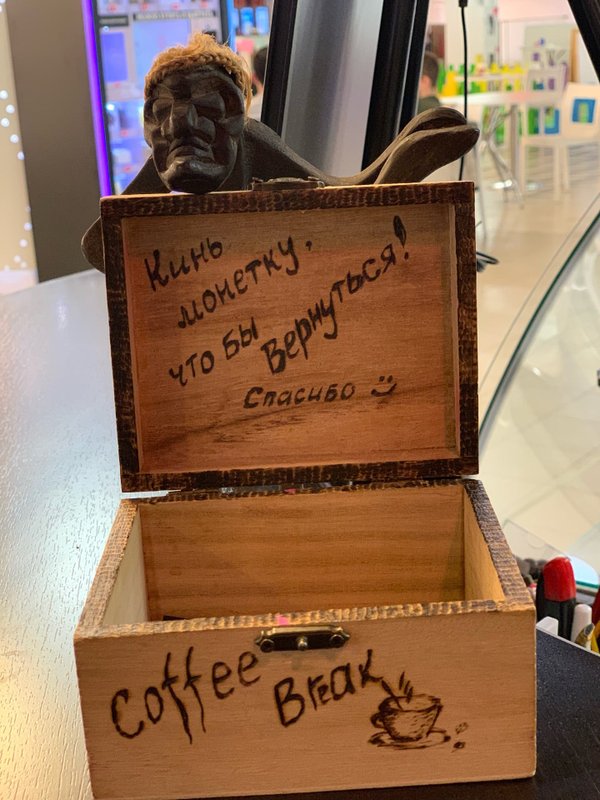 Кинь
монетку,
что бы
Вернуться!
Спасибо
Coffee
Break